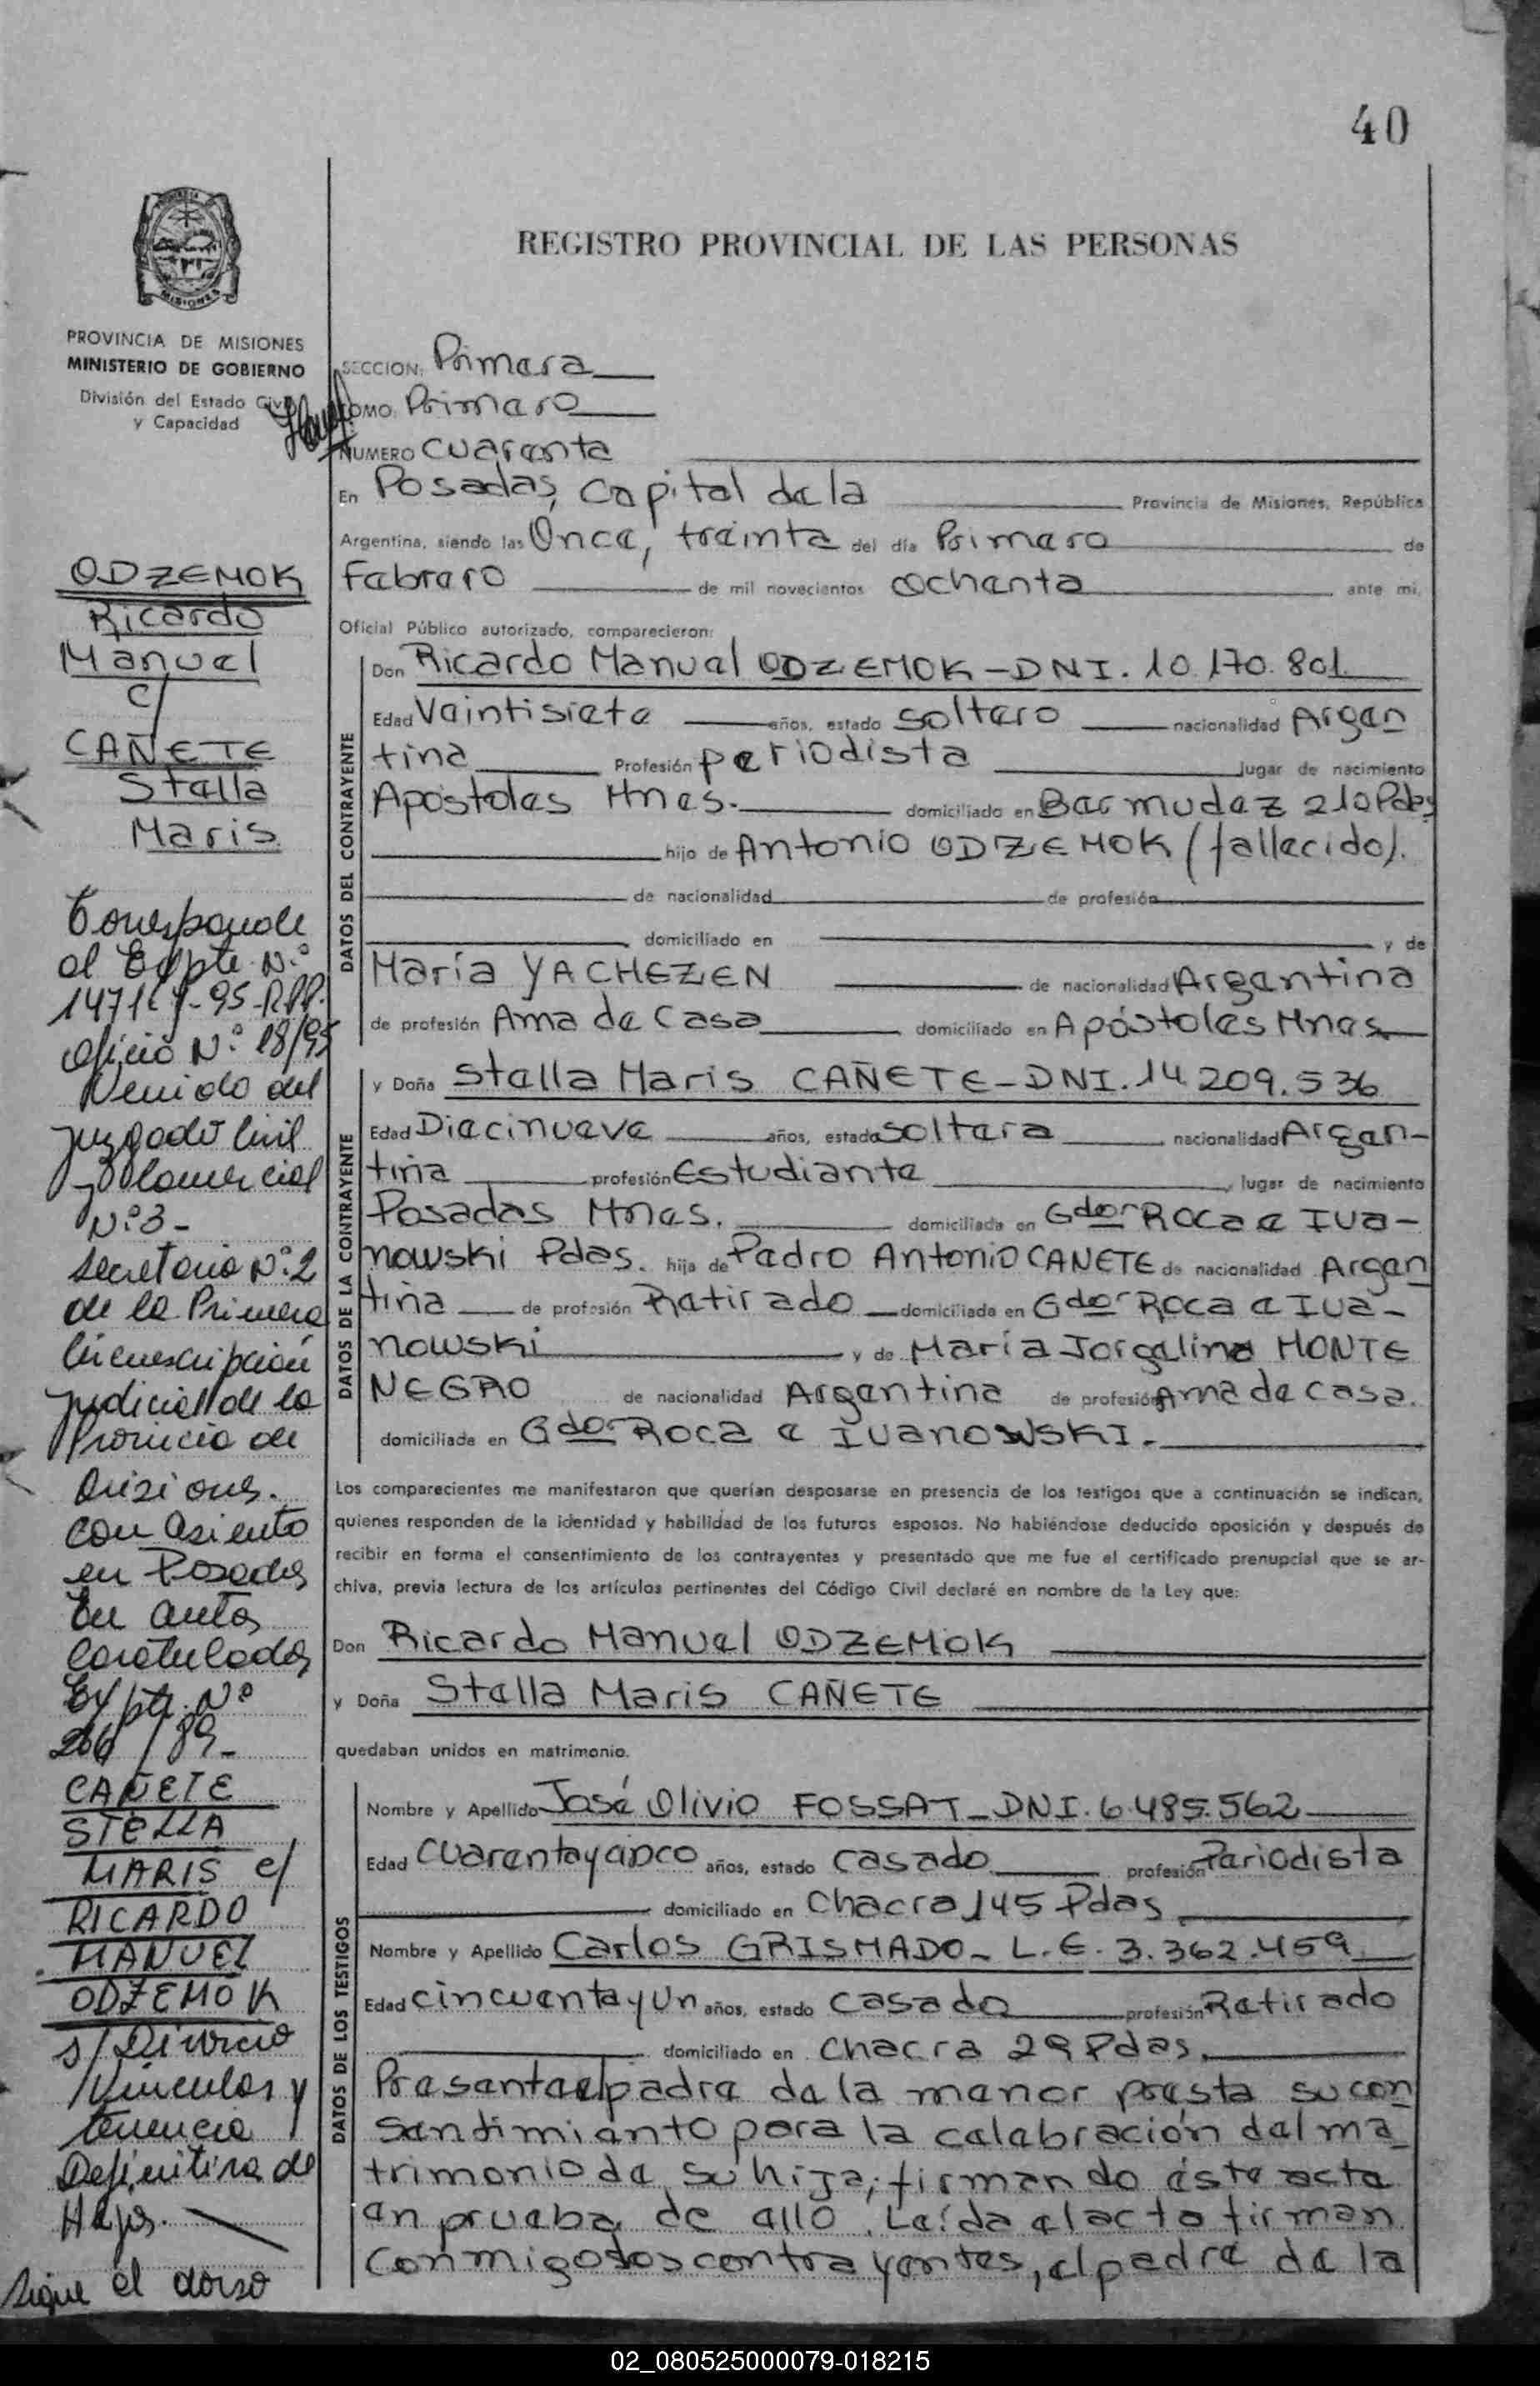 40
REGISTRO PROVINCIAL DE LAS PERSONAS
MISIONES
PROVINCIA DE MISIONES
MINISTERIO DE GOBIERNO
División del Estado Civil
y Capacidad
SECCION: Primera
TOMO: Primero
NUMERO cuarenta
En Posadas, capital de la Provincia de Misiones, República
Argentina, siendo las Once, treinta del día Primero de
Febrero de mil novecientos ochenta ante mi,
Oficial Público autorizado, comparecieron:
Don Ricardo Manuel ODZEMOK - DNI. 10.170.801
Edad Veintisiete años, estado soltero nacionalidad Argen
tina Profesión periodista lugar de nacimiento
Apóstoles Mnes. domiciliado en Bermudez 210 Pdas
hijo de Antonio ODZEMOK (fallecido).
de nacionalidad de profesión
domiciliado en y de
María YACHEZEN de nacionalidad Argentina
de profesión Ama de Casa domiciliado en Apóstoles Mnes
y Doña Stella Maris CAÑETE - DNI. 14.209.536
Edad Diecinueve años, estado soltera nacionalidad Argen-
tina profesión Estudiante lugar de nacimiento
Posadas Mnes. domiciliada en Gdor Roca e Iva-
nowski Pdas. hija de Pedro Antonio CAÑETE de nacionalidad Argen
tina de profesión Retirado domiciliado en Gdor Roca e Iva-
nowski y de María Jorgelina MONTE
NEGRO de nacionalidad Argentina de profesión Ama de casa.
domiciliada en Gdor Roca e IvanowSKI.
Los comparecientes me manifestaron que querían desposarse en presencia de los testigos que a continuación se indican,
quienes responden de la identidad y habilidad de los futuros esposos. No habiéndose deducido oposición y después de
recibir en forma el consentimiento de los contrayentes y presentado que me fue el certificado prenupcial que se ar-
chiva, previa lectura de los artículos pertinentes del Código Civil declaré en nombre de la Ley que:
Don Ricardo Manuel ODZEMOK
y Doña Stella Maris CAÑETE
quedaban unidos en matrimonio.
Nombre y Apellido José Olivio FOSSAT - DNI. 6.485.562
Edad Cuarenta y cinco años, estado casado profesión Periodista
domiciliado en Chacra 145 Pdas
Nombre y Apellido Carlos GRISMADO - L.E. 3.362.459
Edad cincuenta y un años, estado casado profesión Retirado
domiciliado en chacra 29 Pdas.
Presente el padre de la menor presta su con
sentimiento para la celebración del ma
trimonio de su hija, firmando éste acta
en prueba de ello. Leída el acta firman
conmigo los contrayentes, el padre de la
DATOS DEL CONTRAYENTE
DATOS DE LA CONTRAYENTE
DATOS DE LOS TESTIGOS
ODZEMOK
Ricardo
Manuel
c/
CAÑETE
Stella
Maris
Corresponde
al Expte N.º
RPP.
Oficio N.º 18/95
Venido del
Juzgado Civil
y Comercial
N.º 3 -
Secretaria N.º 2
de la Primera
Circunscripción
Judicial de la
Provincia de
Misiones.
con asiento
en Posadas
En autos
caratulados
Expte. Nº
266/89-
CAÑETE
STELLA
MARIS c/
RICARDO
MANUEL
ODZEMOK
s/ Divorcio
Vincular y
tenencia
Definitiva de
Hijos.
Sigue el dorso
02_080525000079-018215